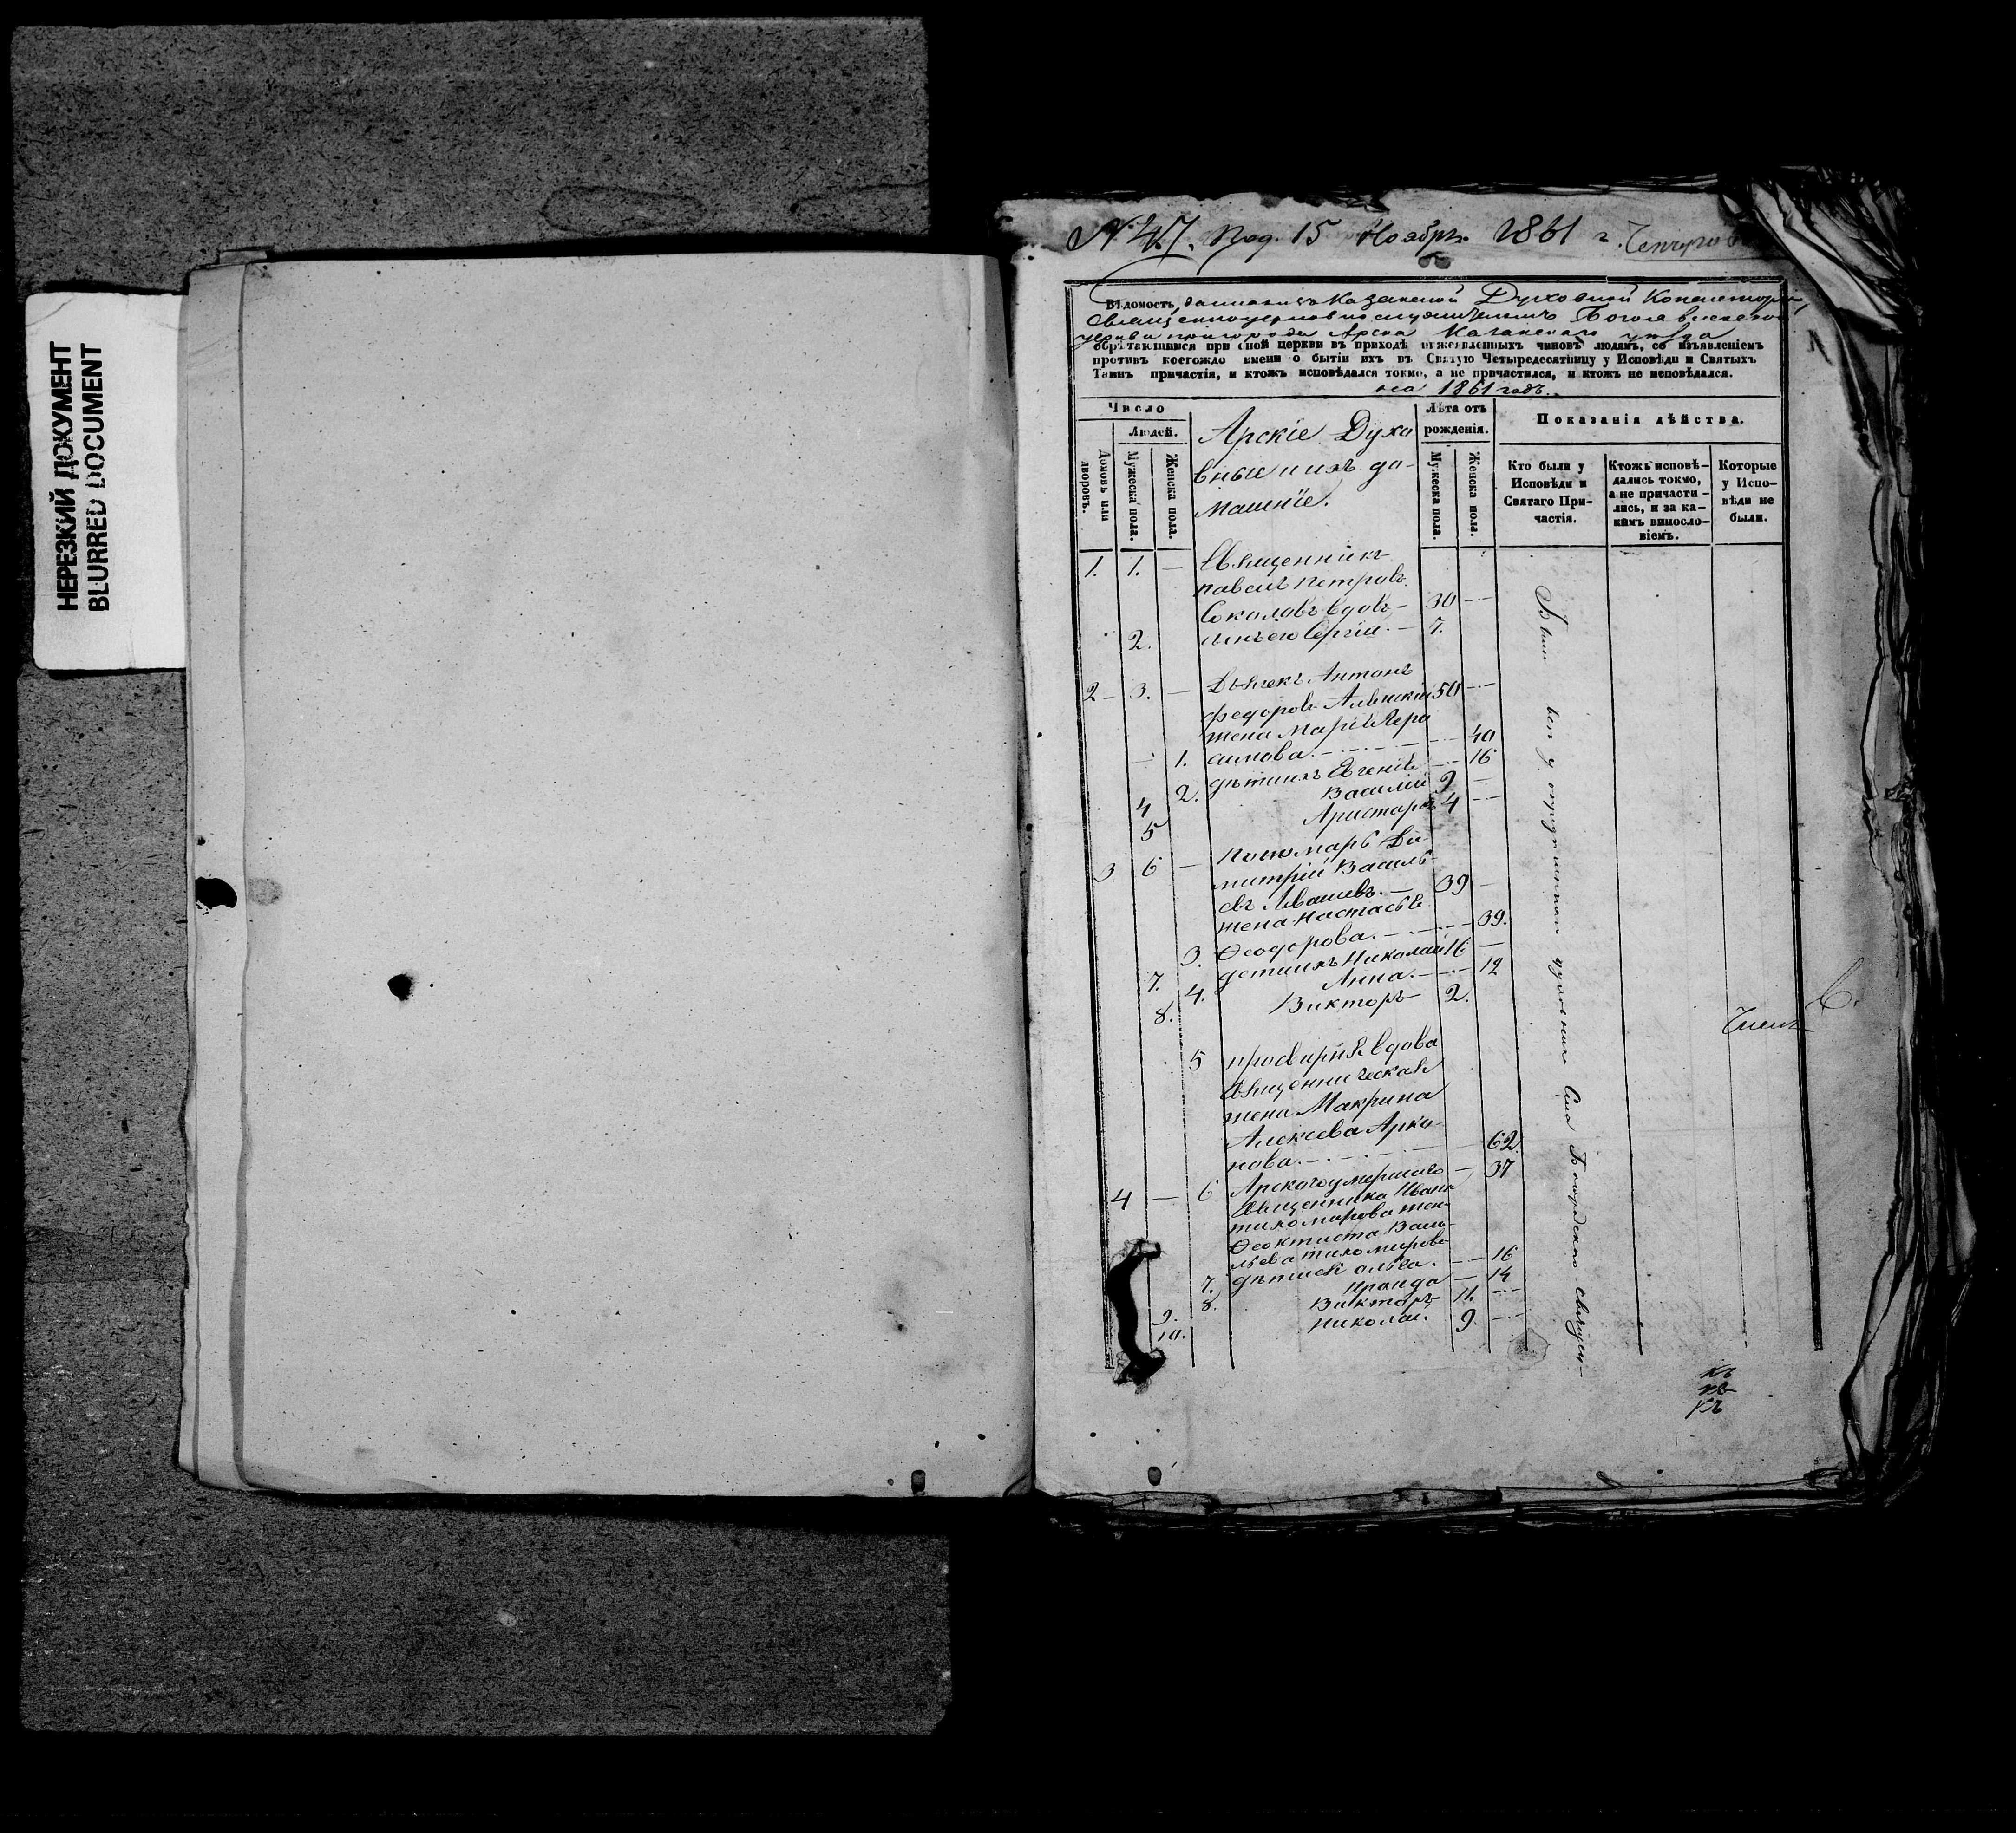 НЕРЕЗКИЙ ДОКУМЕНТ
BLURRED DOCUMENT
№ 47. Под. 15 Ноября. 1861 г.
Вѣдомость, Казанской Духовной Консисторіи,
Богоявленской
церкви пригорода Арска Казанскаго уѣзда
обрѣтающимся при сной церкви въ приходѣ нижеявленныхъ чиновъ людямъ, со изъявленіемъ
противъ коегождо имени о бытіи ихъ въ Святую Четыредесятницу у Исповѣди и Святыхъ
Таинъ причастія, и ктожъ исповѣдался токмо, а не причастился, и ктожъ не исповѣдался.
на 1861 годъ.
Число
Людей.
Домовъ или дворовъ.
Мужеска пола.
Женска пола.
Арскіе Духо
вные и ихъ до-
машніе.
Лѣта отъ
рожденія.
Мужеска пола.
Женска пола.
Показанія дѣйства.
Кто были у
Исповѣди и
Святаго При-
частія.
Ктожъ исповѣ-
дались токмо,
а не причасти-
лись, и за ка-
кимъ винослo-
віемъ.
Которые
у Испо-
вѣди не
были.
1. 1. — Священникъ
Павелъ Петровъ
Соколовъ вдовъ — 30
2. сынъ его Сергій — 7.
2 — 3. — Дьячекъ Антонъ
Федоровъ 50
жена Марія Гера
1. симова. 40
2. дѣти ихъ Евгенія 16
4 Василій 9
5 Аристархъ 4
3 6 — Пономарь Ди-
митрій Василь-
евъ Ивашевъ. — 39
жена Настасья
3. Ѳеодорова. 39.
7. дети ихъ Николай 16
4. Анна. 12
8. Викторъ 2.
5 Просвирня вдова
священническая
жена Макрина
Алексѣева Арка-
нова. 62
4 — 6 Арскаго умершаго — 37
священника Ивана
Тихомирова жена
Ѳеоктиста Васи-
льева Тихомирова
7. дѣти ея Ольга. 16
8. Ираида — 14
9. Викторъ 11.
10. Николай. 9.
Были все у